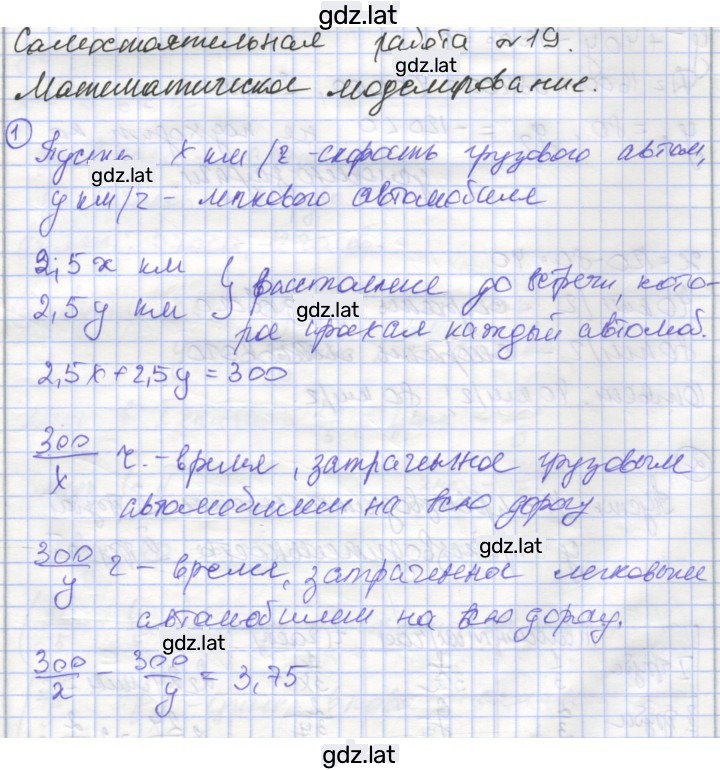 gdz.lat
Самостоятельная работа №19.
gdz.lat
Математическое моделирование.
① Пусть x км/ч - скорость грузового автом,
gdz.lat
y км/ч - легкового автомобиля
2,5x км
2,5y км } расстояние до встречи, кото-
gdz.lat
рое проехал каждый автомоб.
2,5x + 2,5y = 300
gdz.lat
300/x ч. - время, затраченное грузовым
автомобилем на всю дорогу
gdz.lat
300/y ч - время, затраченное легковым
автомобилем на всю дорогу.
gdz.lat
300/x - 300/y = 3,75
gdz.lat
gdz.lat